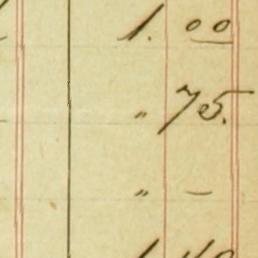 1. 00
" 75.
" —